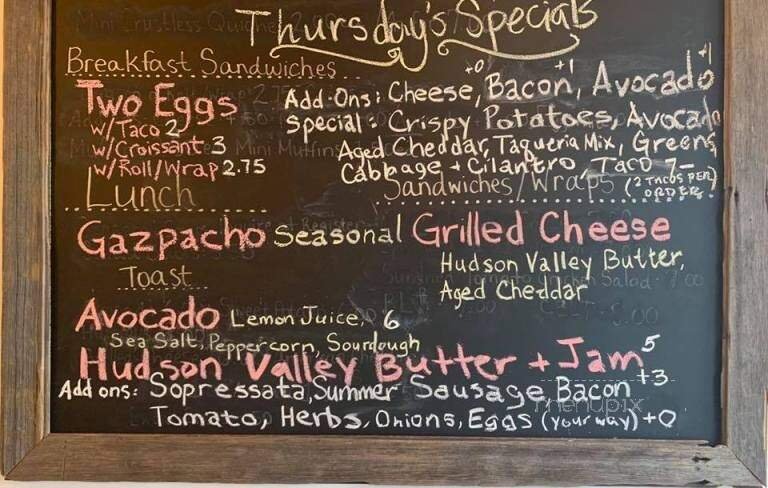 Thursday's Specials
Breakfast Sandwiches
Two Eggs
w/Taco 2
w/Croissant 3
w/Roll/Wrap 2.75
Add-Ons: Cheese, +0 Bacon, +1 Avocado +1
Special: Crispy Potatoes, Avocado
Aged Cheddar, Taqueria Mix, Greens
Cabbage + Cilantro, Taco 7-
(2 TACOS PER ORDER)
Lunch
Sandwiches/Wraps
Gazpacho Seasonal
Grilled Cheese
Hudson Valley Butter,
Aged Cheddar
Toast
Avocado Lemon Juice, 6
Sea Salt, Peppercorn, Sourdough
Hudson Valley Butter + Jam 5
Add ons: Sopressata, Summer Sausage, Bacon +3
Tomato, Herbs, Onions, Eggs (your way) +0
menupix